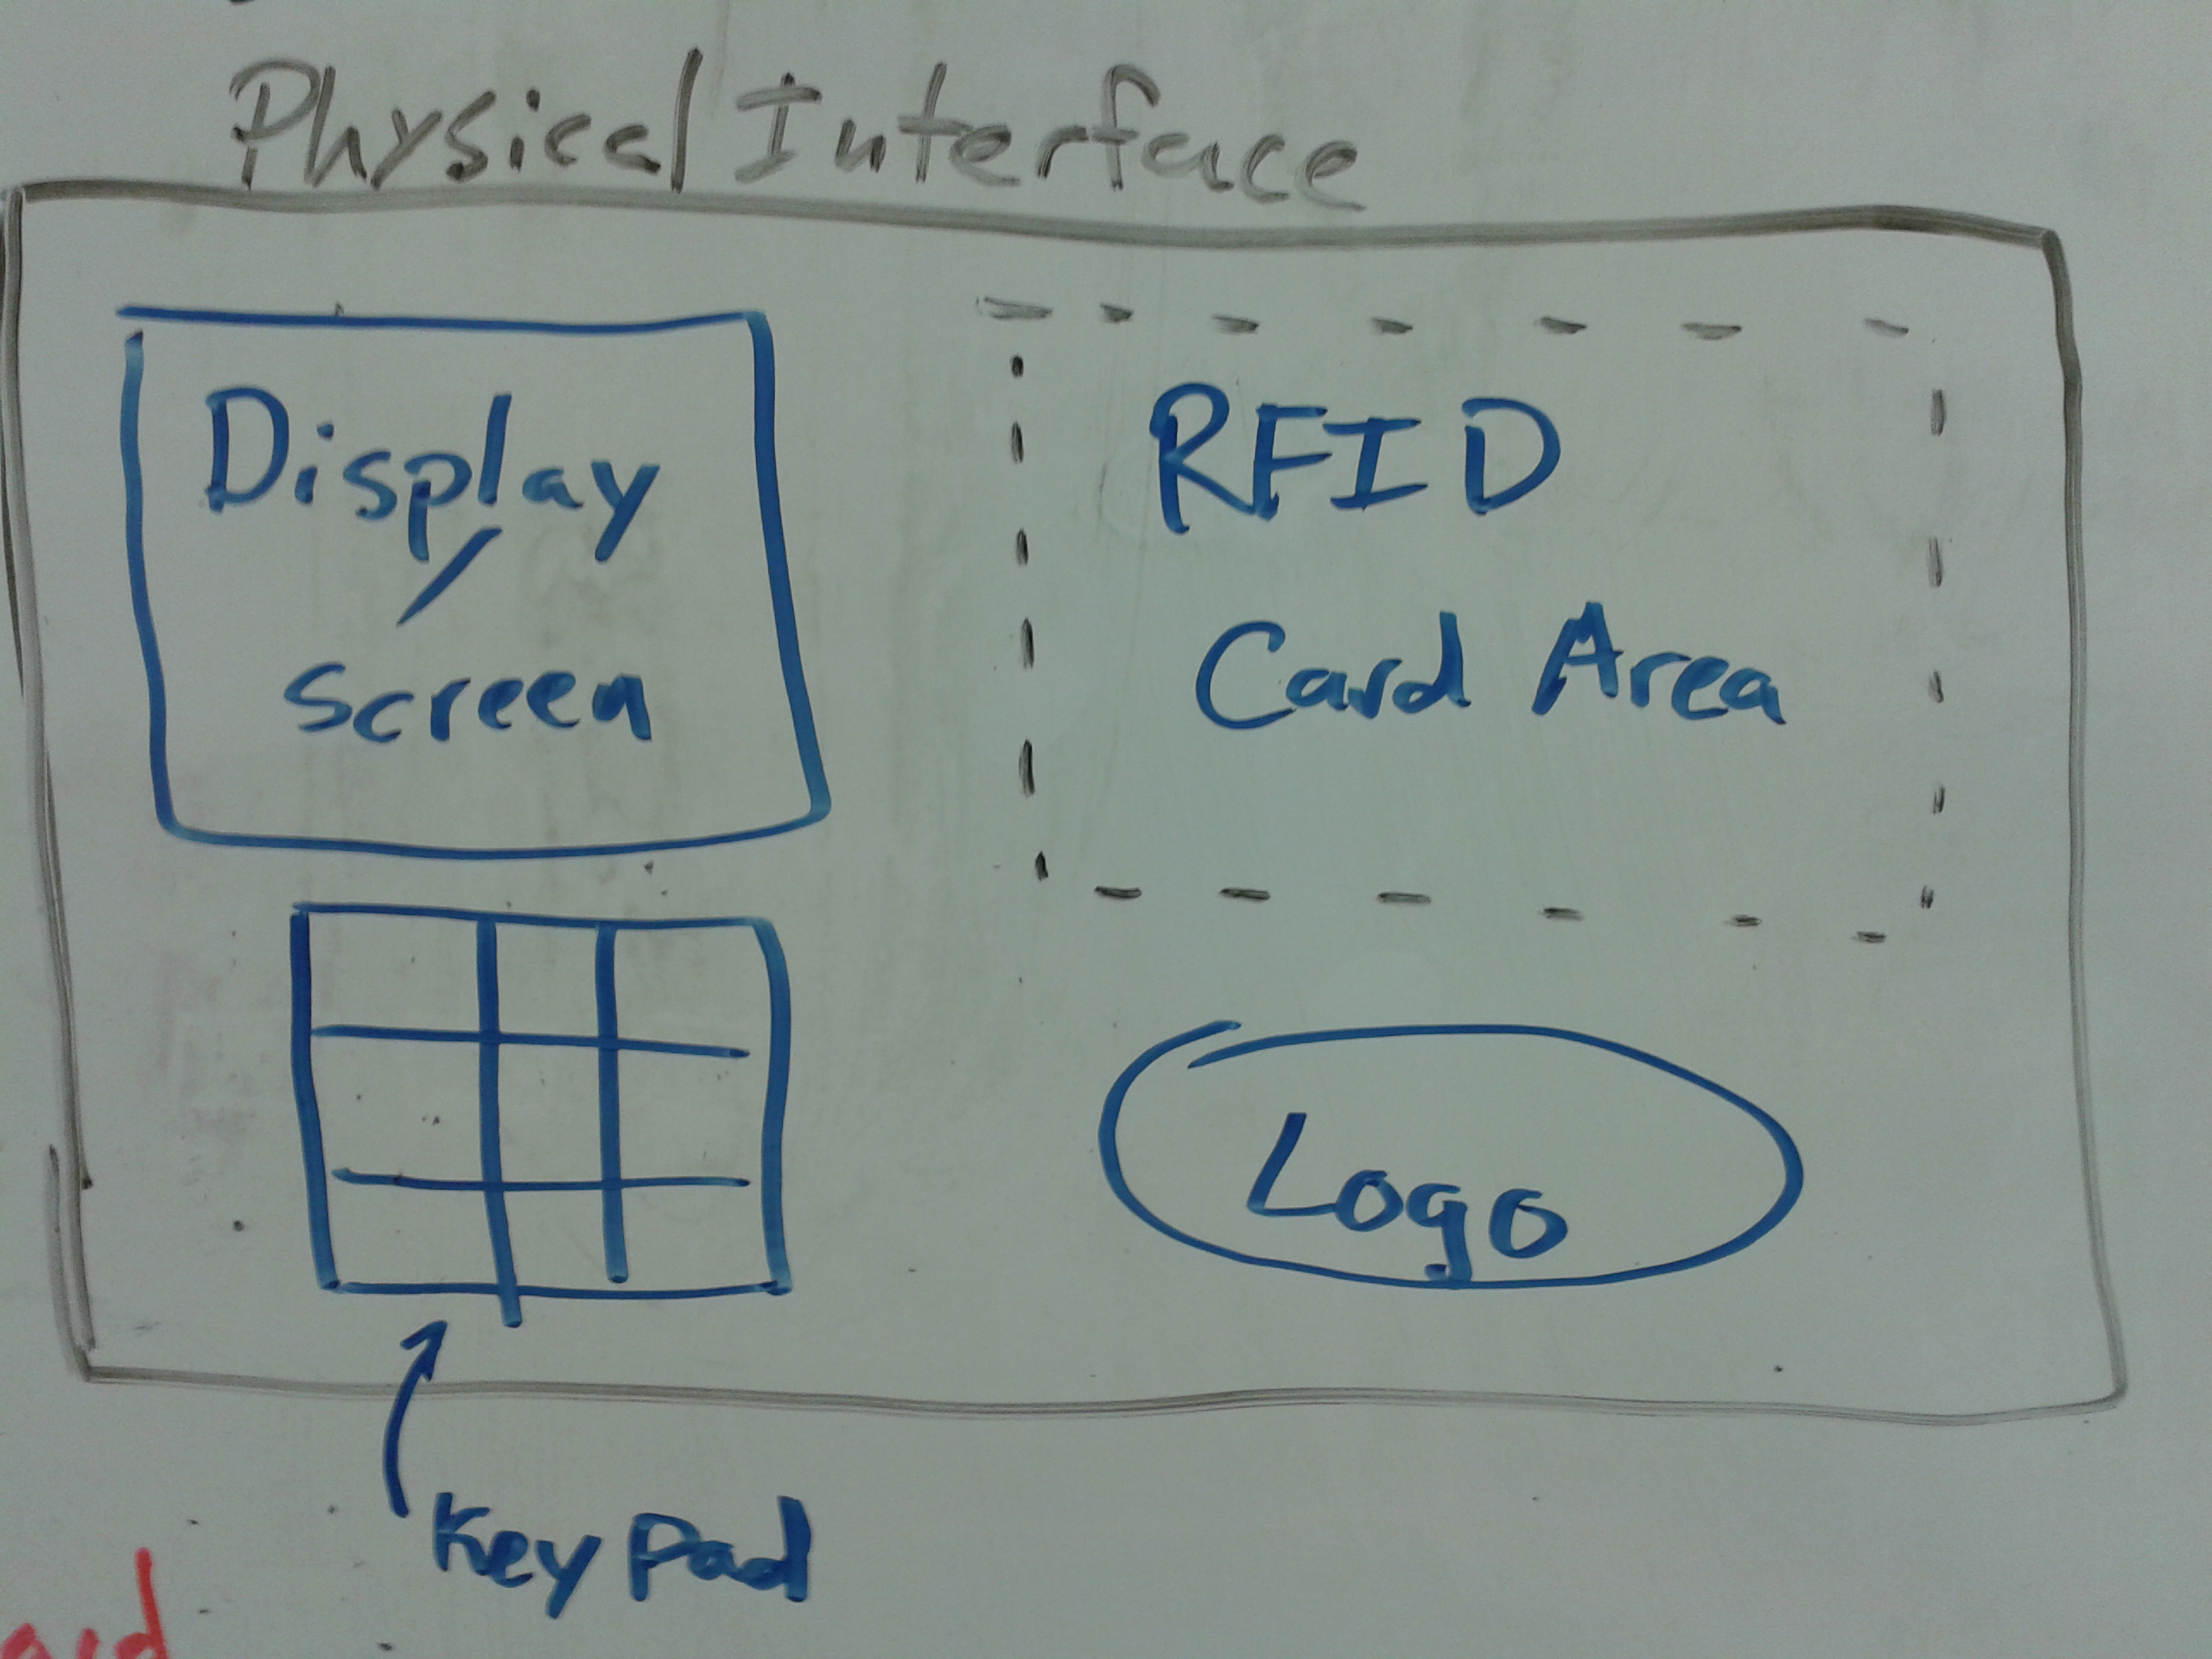 Physical Interface
Display
/
screen
RFID
Card Area
Logo
Key Pad